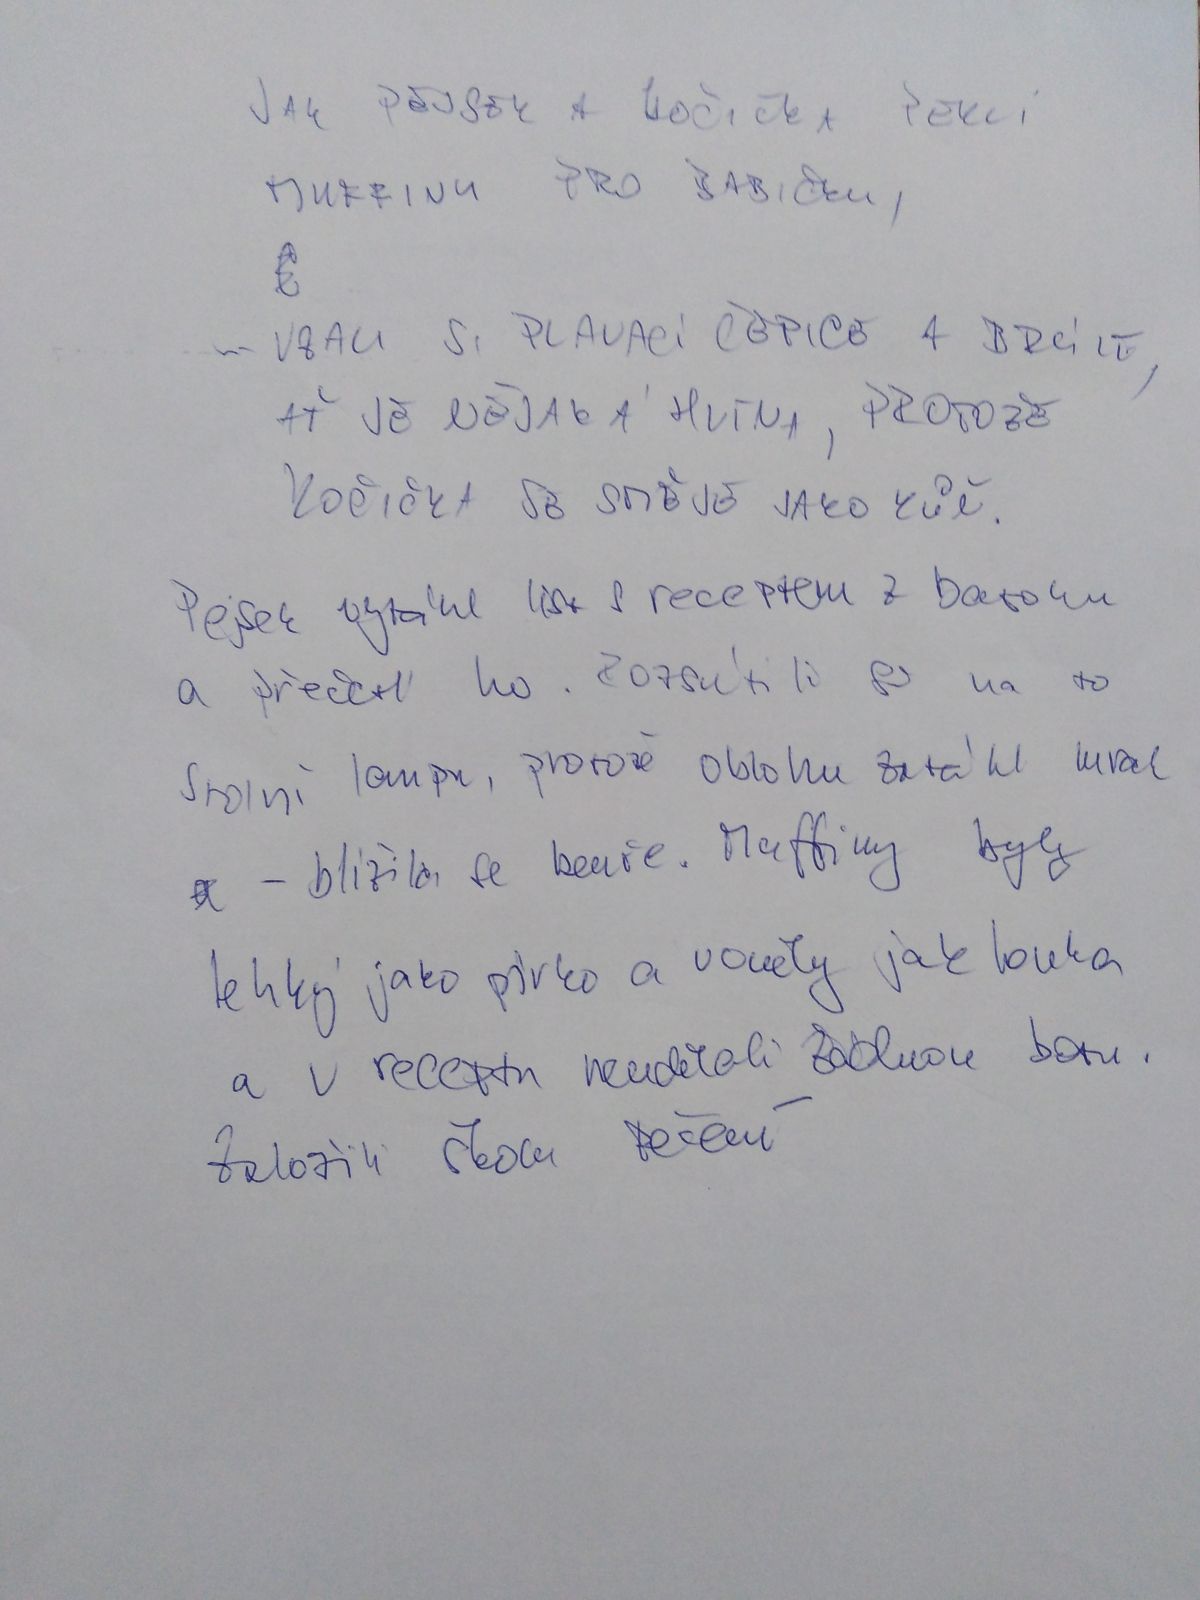 JAK PEJSEK A KOČIČKA PEKLI
MUFFINY PRO BABIČKU,
VZALI SI PLAVACÍ ČEPICE A BRÝLE,
AŤ JE NĚJAKÁ HLÍNA, PROTOŽE
KOČIČKA SE SMĚJE JAKO KŮŇ.
Pejsek vytáhl list s receptem z batohu
a přečetl ho. Rozsvítili si na to
stolní lampu, protože oblohu zatáhl mrak
- blížila se bouře. Muffiny byly
lehký jako pírko a voněly jak louka
a v receptu neudělali žádnou botu.
Založili školu pečení